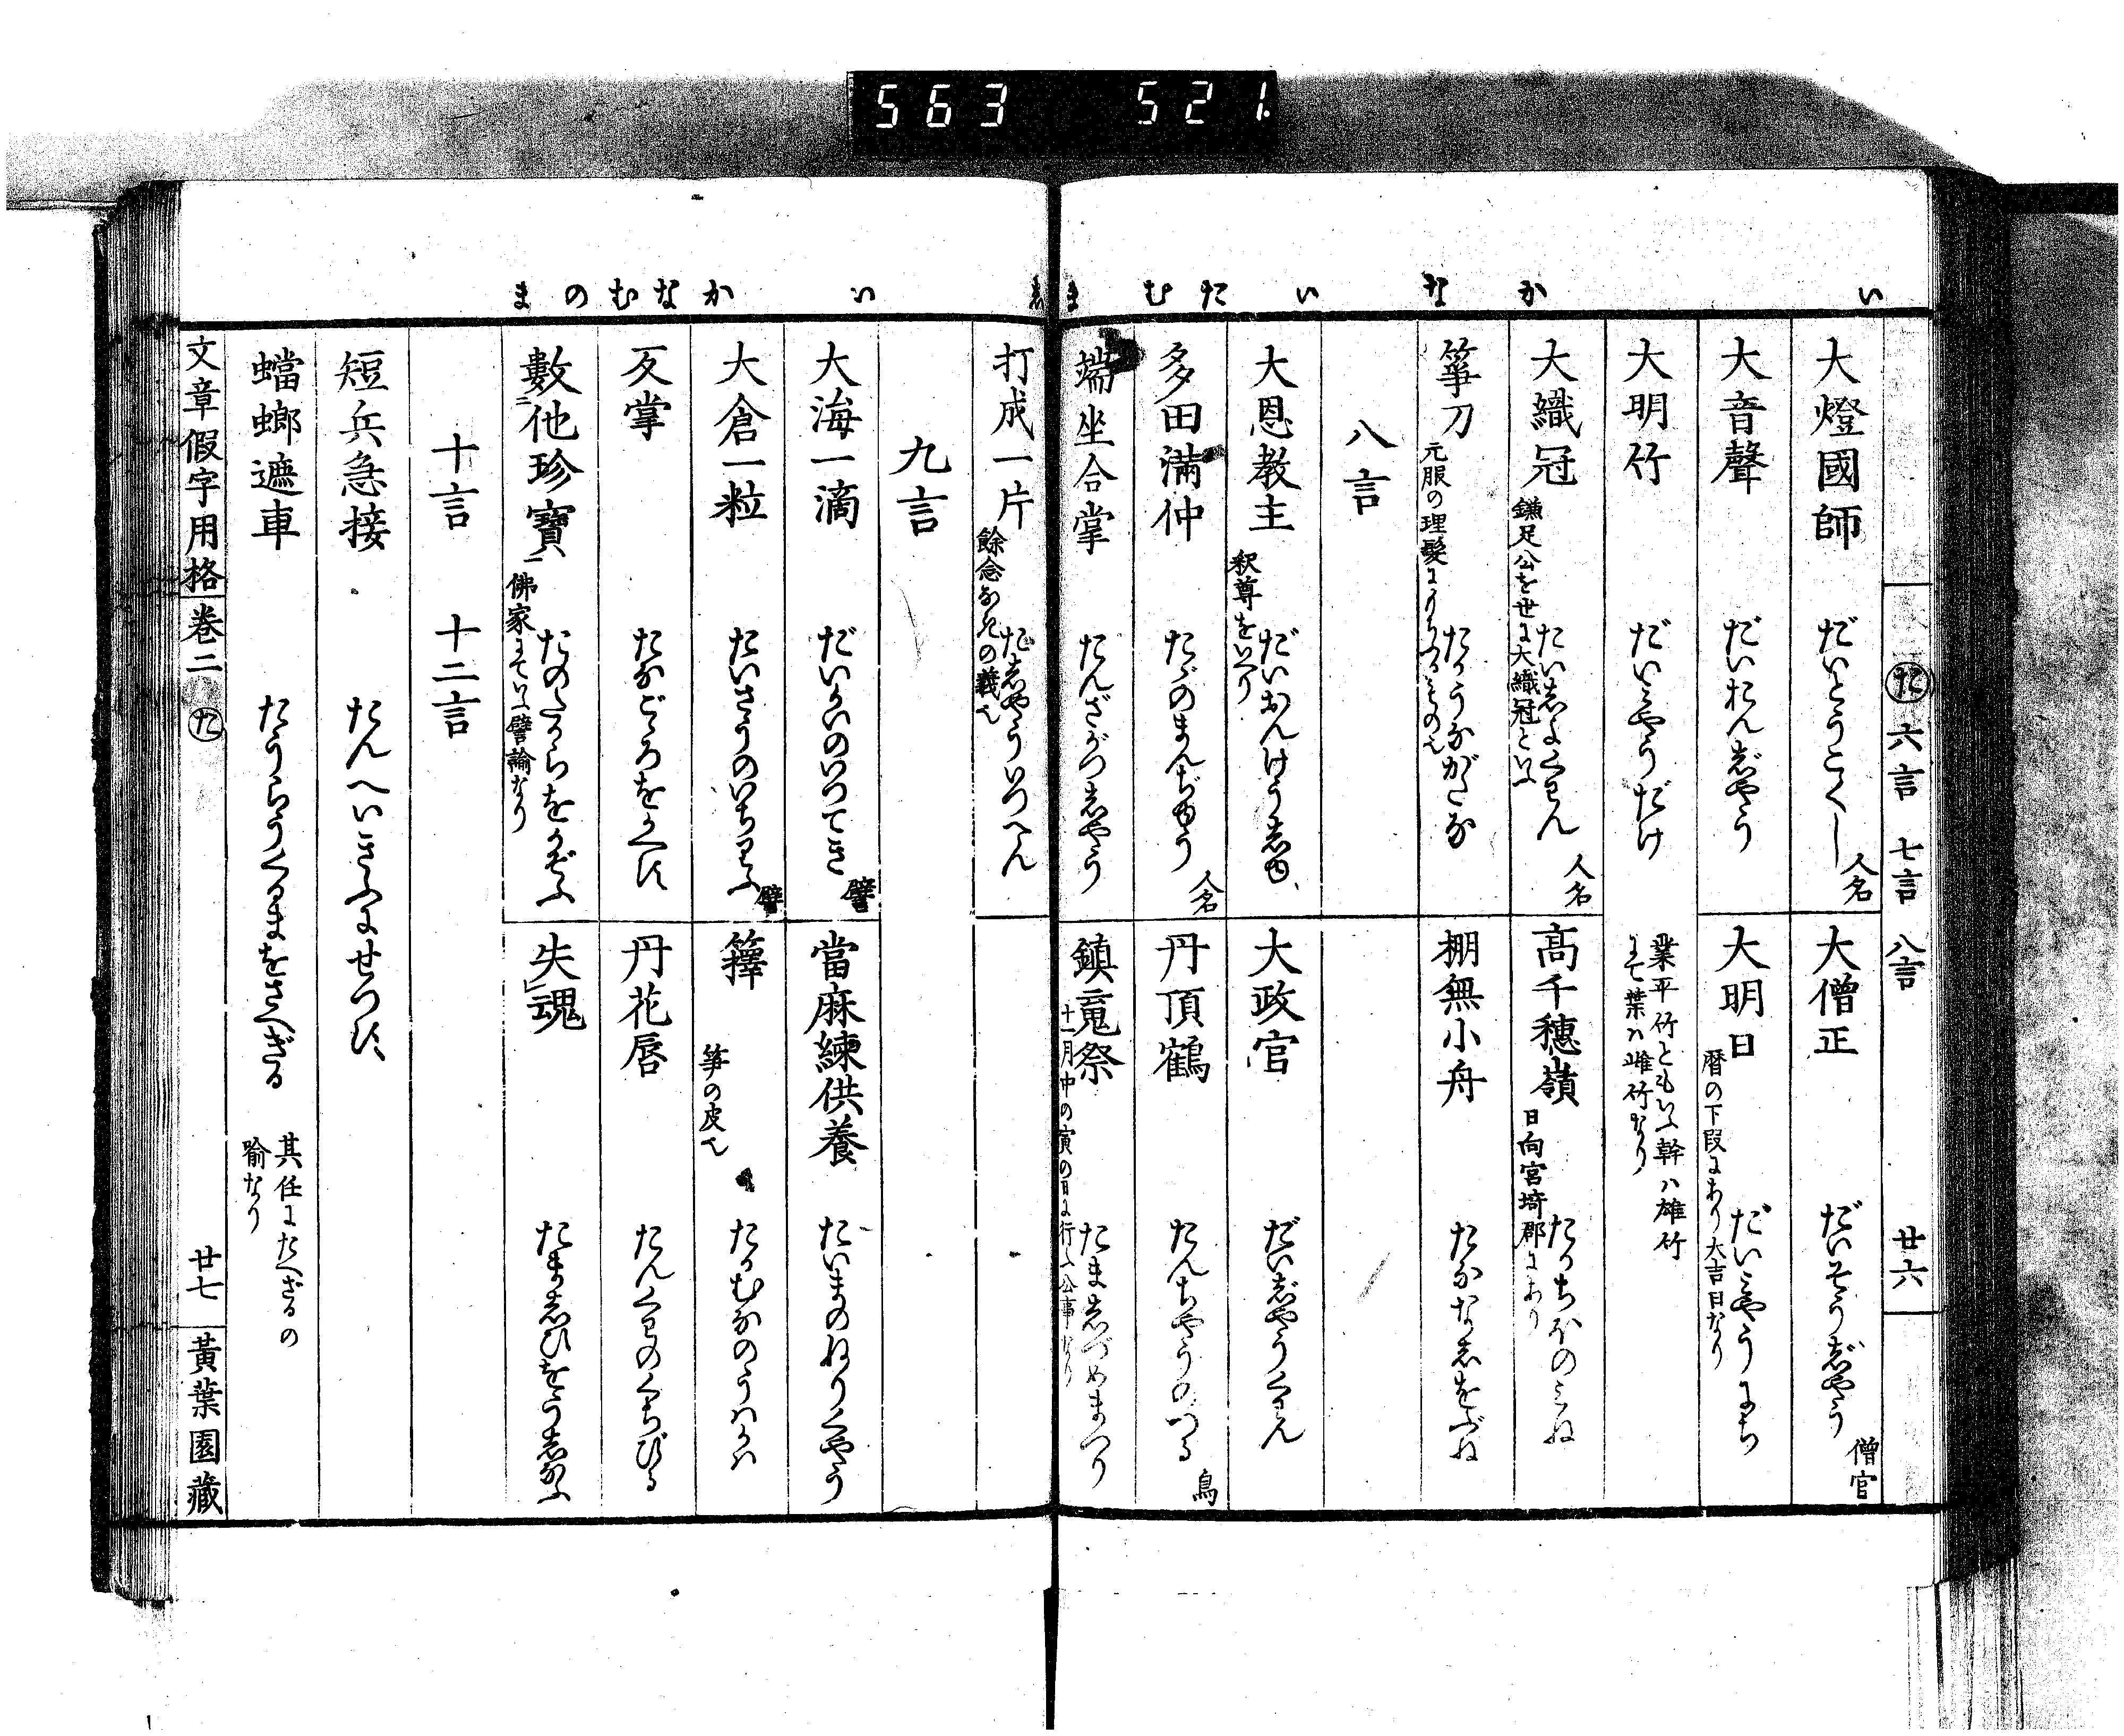 563 521
い
か
な
い
た
む
ま
た 六言 七言 八言 廿六
大燈國師 だいとうこくし 人名
大僧正 だいそうじやう 僧官
大音聲 だいおんじやう
大明日 暦の下段にあり大吉日なり だいみやうにち
大明竹 だいみやうだけ
業平竹ともいふ幹ハ雄竹
にて葉ハ雌竹なり
大織冠 鎌足公を世に大織冠といふ たいしよくくわん 人名
高千穗嶺 日向宮埼郡にあり たかちほのみね
筭刀 元服の理髮に たかうながたな
棚無小舟 たななしをぶね
八言
大恩教主 釈尊をいへり だいおんけうしゆ
大政官 だいじやうくわん
多田滿仲 たゞのまんぢゆう 人名
丹頂鶴 たんちやうのつる 鳥
端坐合掌 たんざがつしやう
鎭䰟祭 十一月中の寅の日に行ふ公事なり たましづめまつり
い
か
な
む
の
ま
打成一片 餘念なきの義也 だじやういつへん
九言
大海一滴 だいかいのいつてき 譬
當麻練供養 たいまのねりくやう
大倉一粒 たいさうのいちりふ 譬
籜 笋の皮也 たかむなのうはかは
反掌 たなごころをかへす
丹花唇 たんくわのくちびる
數他珍寶 佛家にていふ譬諭なり たのたからをかぞふ
失魂 たましひをうしなふ
十言 十二言
短兵急接 たんへいきふにせつす
蟷螂遮車 たうらうくるまをさへぎる
其任にたへざるの
喩なり
文章假字用格 巻二 た 廿七 黃葉園藏